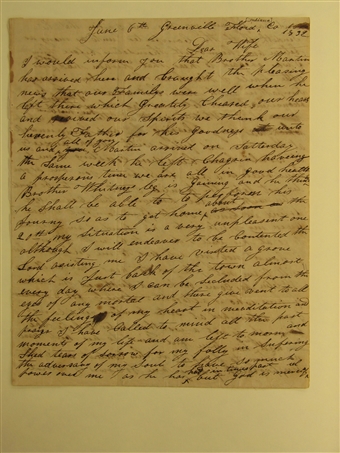 June 6th Greenville Floyd Co
1832
Dear Wife
I would inform you that Brother Martin
has arrived here and braught the pleasing
news that our Familys ware well when he
left them which greately Cheared our hearts
and our Spirits we thank our
heavenly Father for his Goodness unto
us and all of you Martin arrived on Saturday
the same week he left Chagrin haveing
a prosperous time we are all in good health
Brother Whitneys leg is gaining and he thinks
he shall be able to to perform his
Journy so as to get home about the
20th my Situation is a very unpleasent one
although I will endeaver to be Contented the
Lord asisting me I have visited a grove
which is Just back of the town almost
every day where I can be Secluded from the
eyes of any mortal and there give vent to all
the feelings of my heart in meaditation and
praiyr I have Called to mind all the past
moments of my life and am left to morn and
Shed tears of sorrow for my folly in Sufering
the adversary of my Soul to have so much
power over me as he has had in times past
but God is merciful